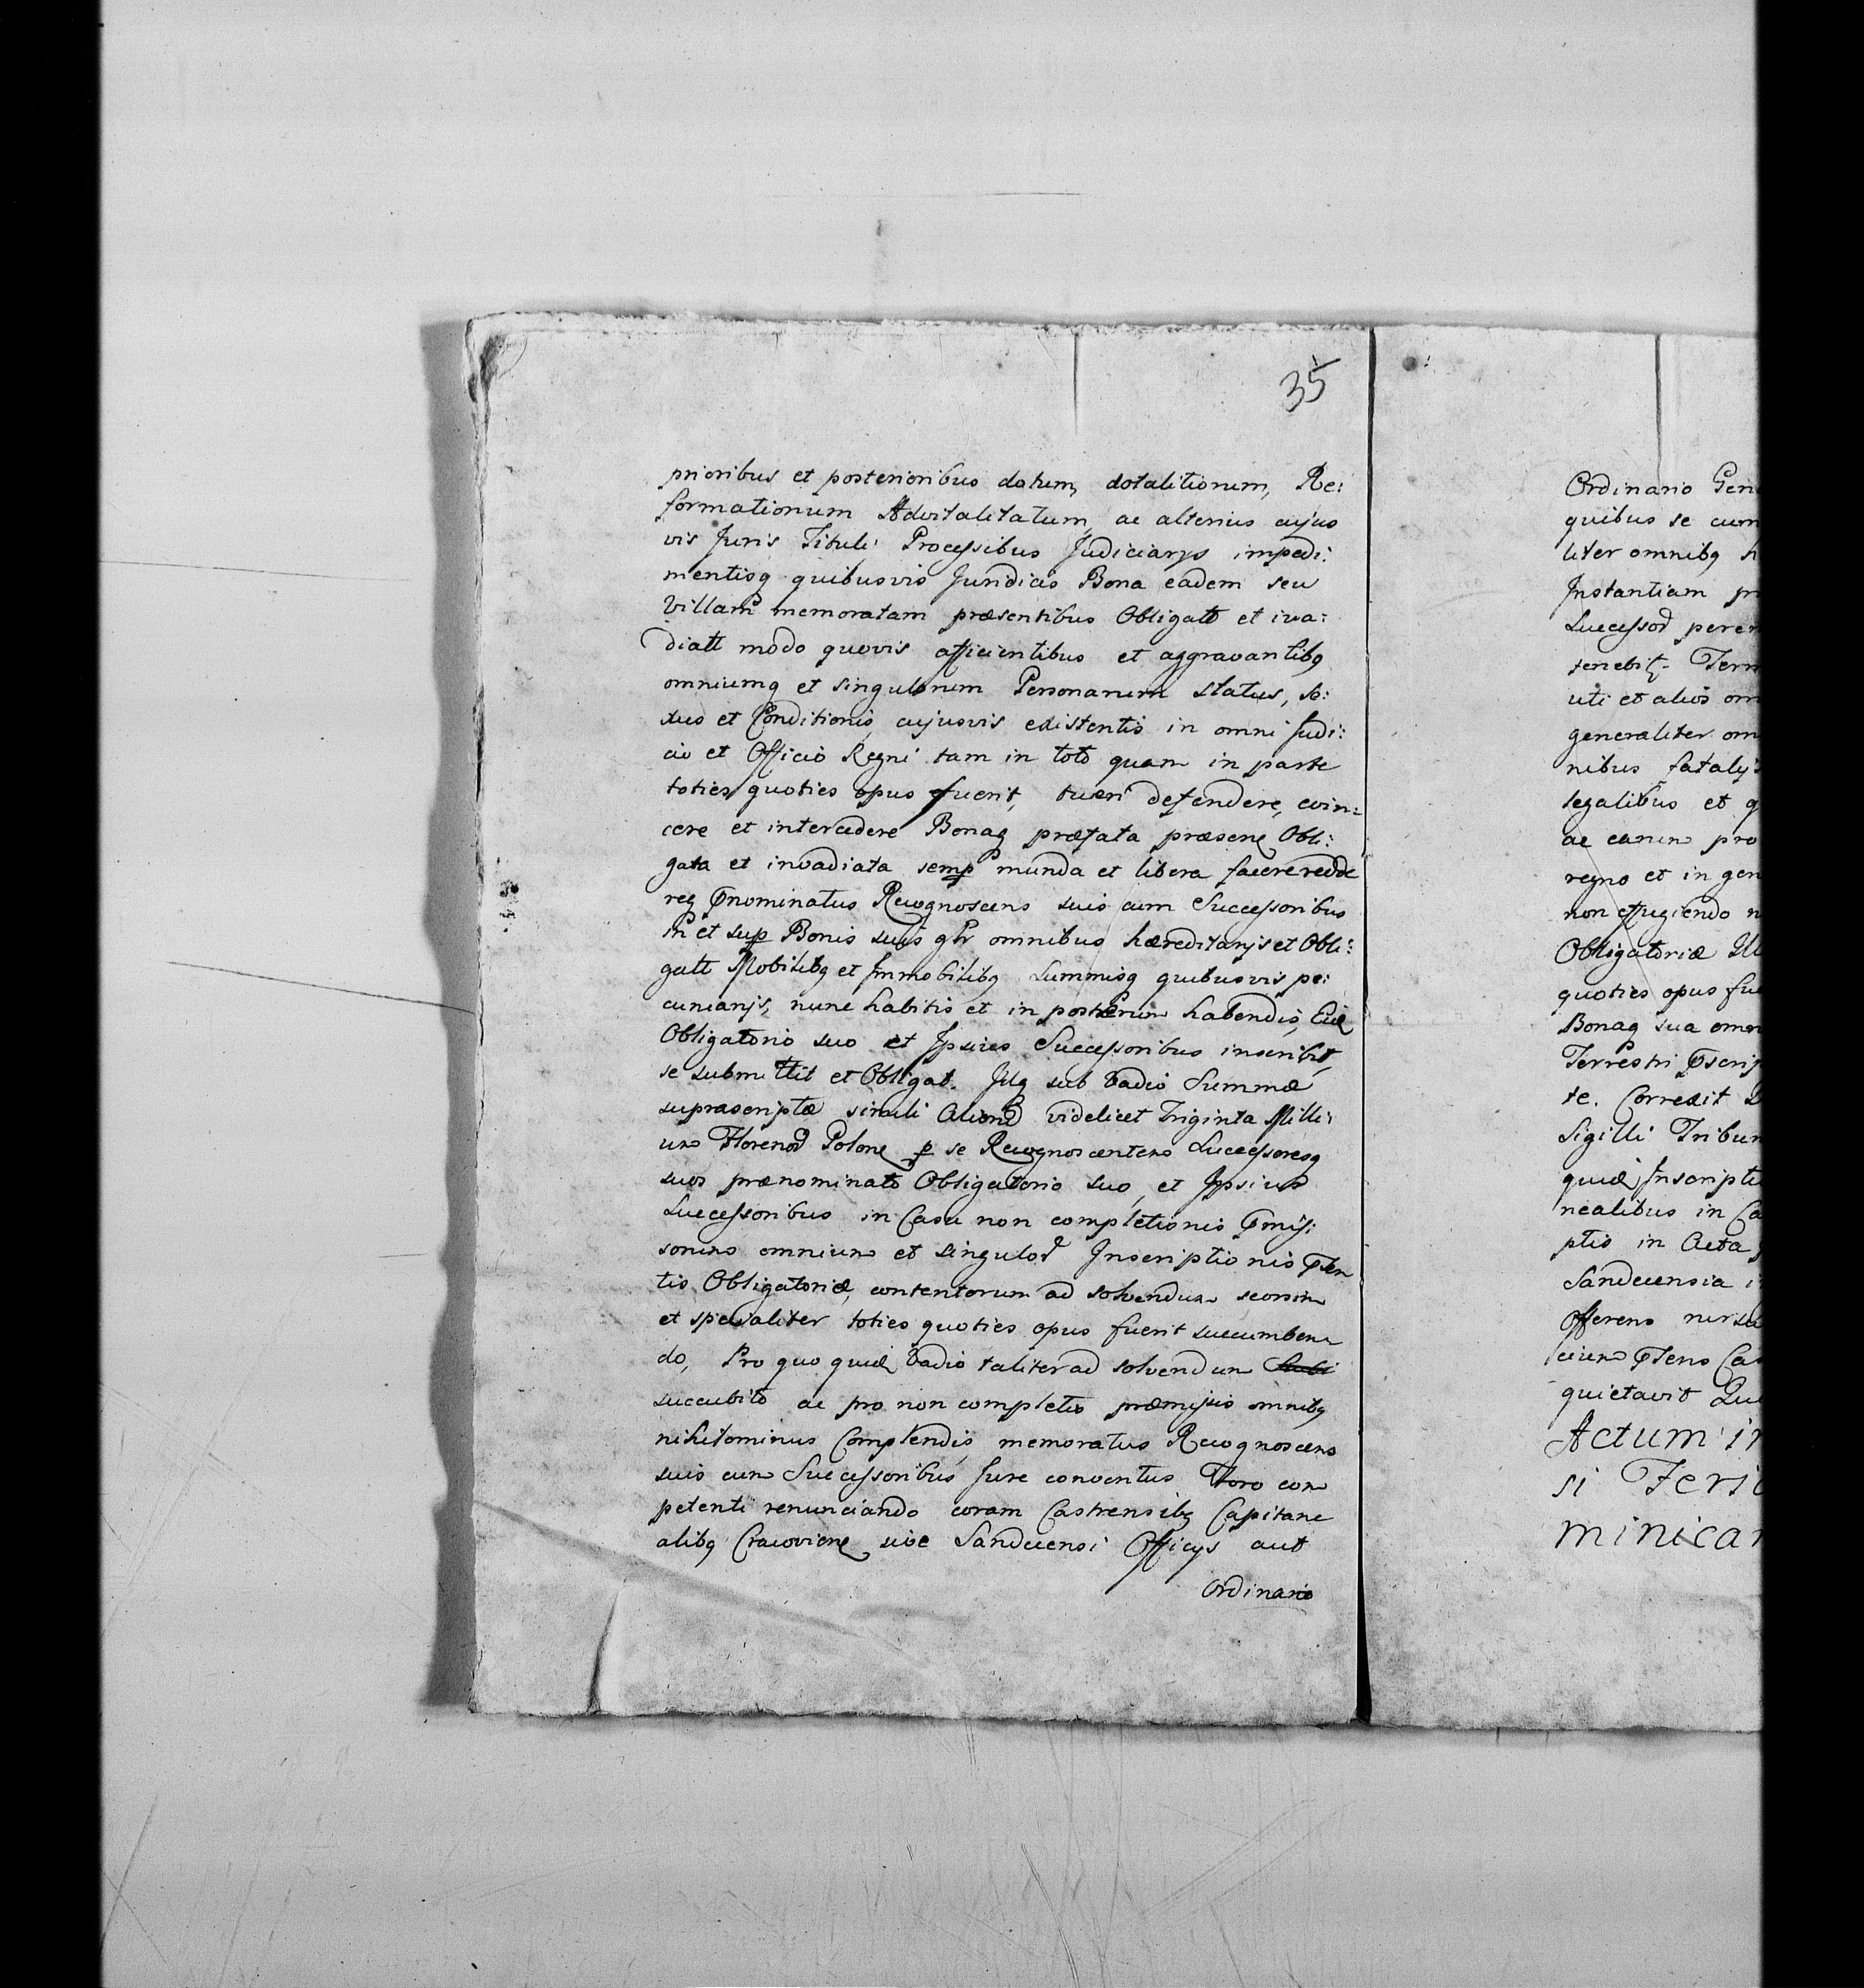 35
prioribus et posterioribus dotum, dotalitiorum, Re:
formationum Advitalitatum, ac alterius cujus
vis Juris Tituli Processibus Judiciarys impedi:
mentisq quibusvis Juridicis Bona eadem seu
Villam memoratam præsentibus Obligatt et inva:
diatt modo quovis afficientibus et aggravantibq
omniumq et singularum Personarum status, se:
xus et Conditionis, cujusvis existentis in omni Judi:
cio et Officio Regni tam in toto quam in parte
toties quoties opus fuerit, tueri defendere, evin:
cere et intercedere Bonaq præfata præsene Obli:
gata et invadiata semp munda et libera facere redde
req Pnominatus Recognoscens suis cum Successoribus
in et sup Bonis suis gtr omnibus hæreditarijs et Obli:
gatt Mobilibq et Immobilibq Summisq quibusvis pe:
cuniarijs, nunc habitis et in posterum habendis, Eid
Obligatorio suo et Ipsius Successoribus inscribit,
se submittit et Obligat. Idq sub Vadio Summæ
suprascriptæ simili Aliond videlicet Triginta Milli:
um Florenod Polone p se Recognoscentem Successoresq
suos prænominato Obligatorio suo, et Ipsius
Successoribus in Casu non completionis Pmiss:
sorum omnium et singulod Inscriptionis Psen
tis Obligatoriæ, contentorum ad solvendum seorsim
et specialiter toties quoties opus fuerit succumben
do, Pro quo quid Vadio taliter ad solvendum
succubito ac pro non completis præmissis omnibq
nihilominus Complendis, memoratus Recognoscens
suis cum Successoribus, Jure conventus Foro com
petenti renunciando coram Castrensibq Capitane
alibq Cracoviene sive Sandecensi Officys aut
Ordinario
Ordinario Gen
quibus se cum
liter omnibq h
Instantiam pr
Successod perem
tenebit. Term
uti et alios om
generaliter om
nibus fatalijs
legalibus et q
ac earum pro
regno et in gen
non effugiendo n
Obligatoriæ Ill
quoties opus fue
Bonaq sua omn
Terrestri Pscrip
te. Correxit
Sigilli Tribun
quid Inscripti
nealibus in Ca
ptis in Acta
Sandecensia i
Offerens rursu
cium Psens Cas
quietavit Qu
Actum in
si Feri
minicar